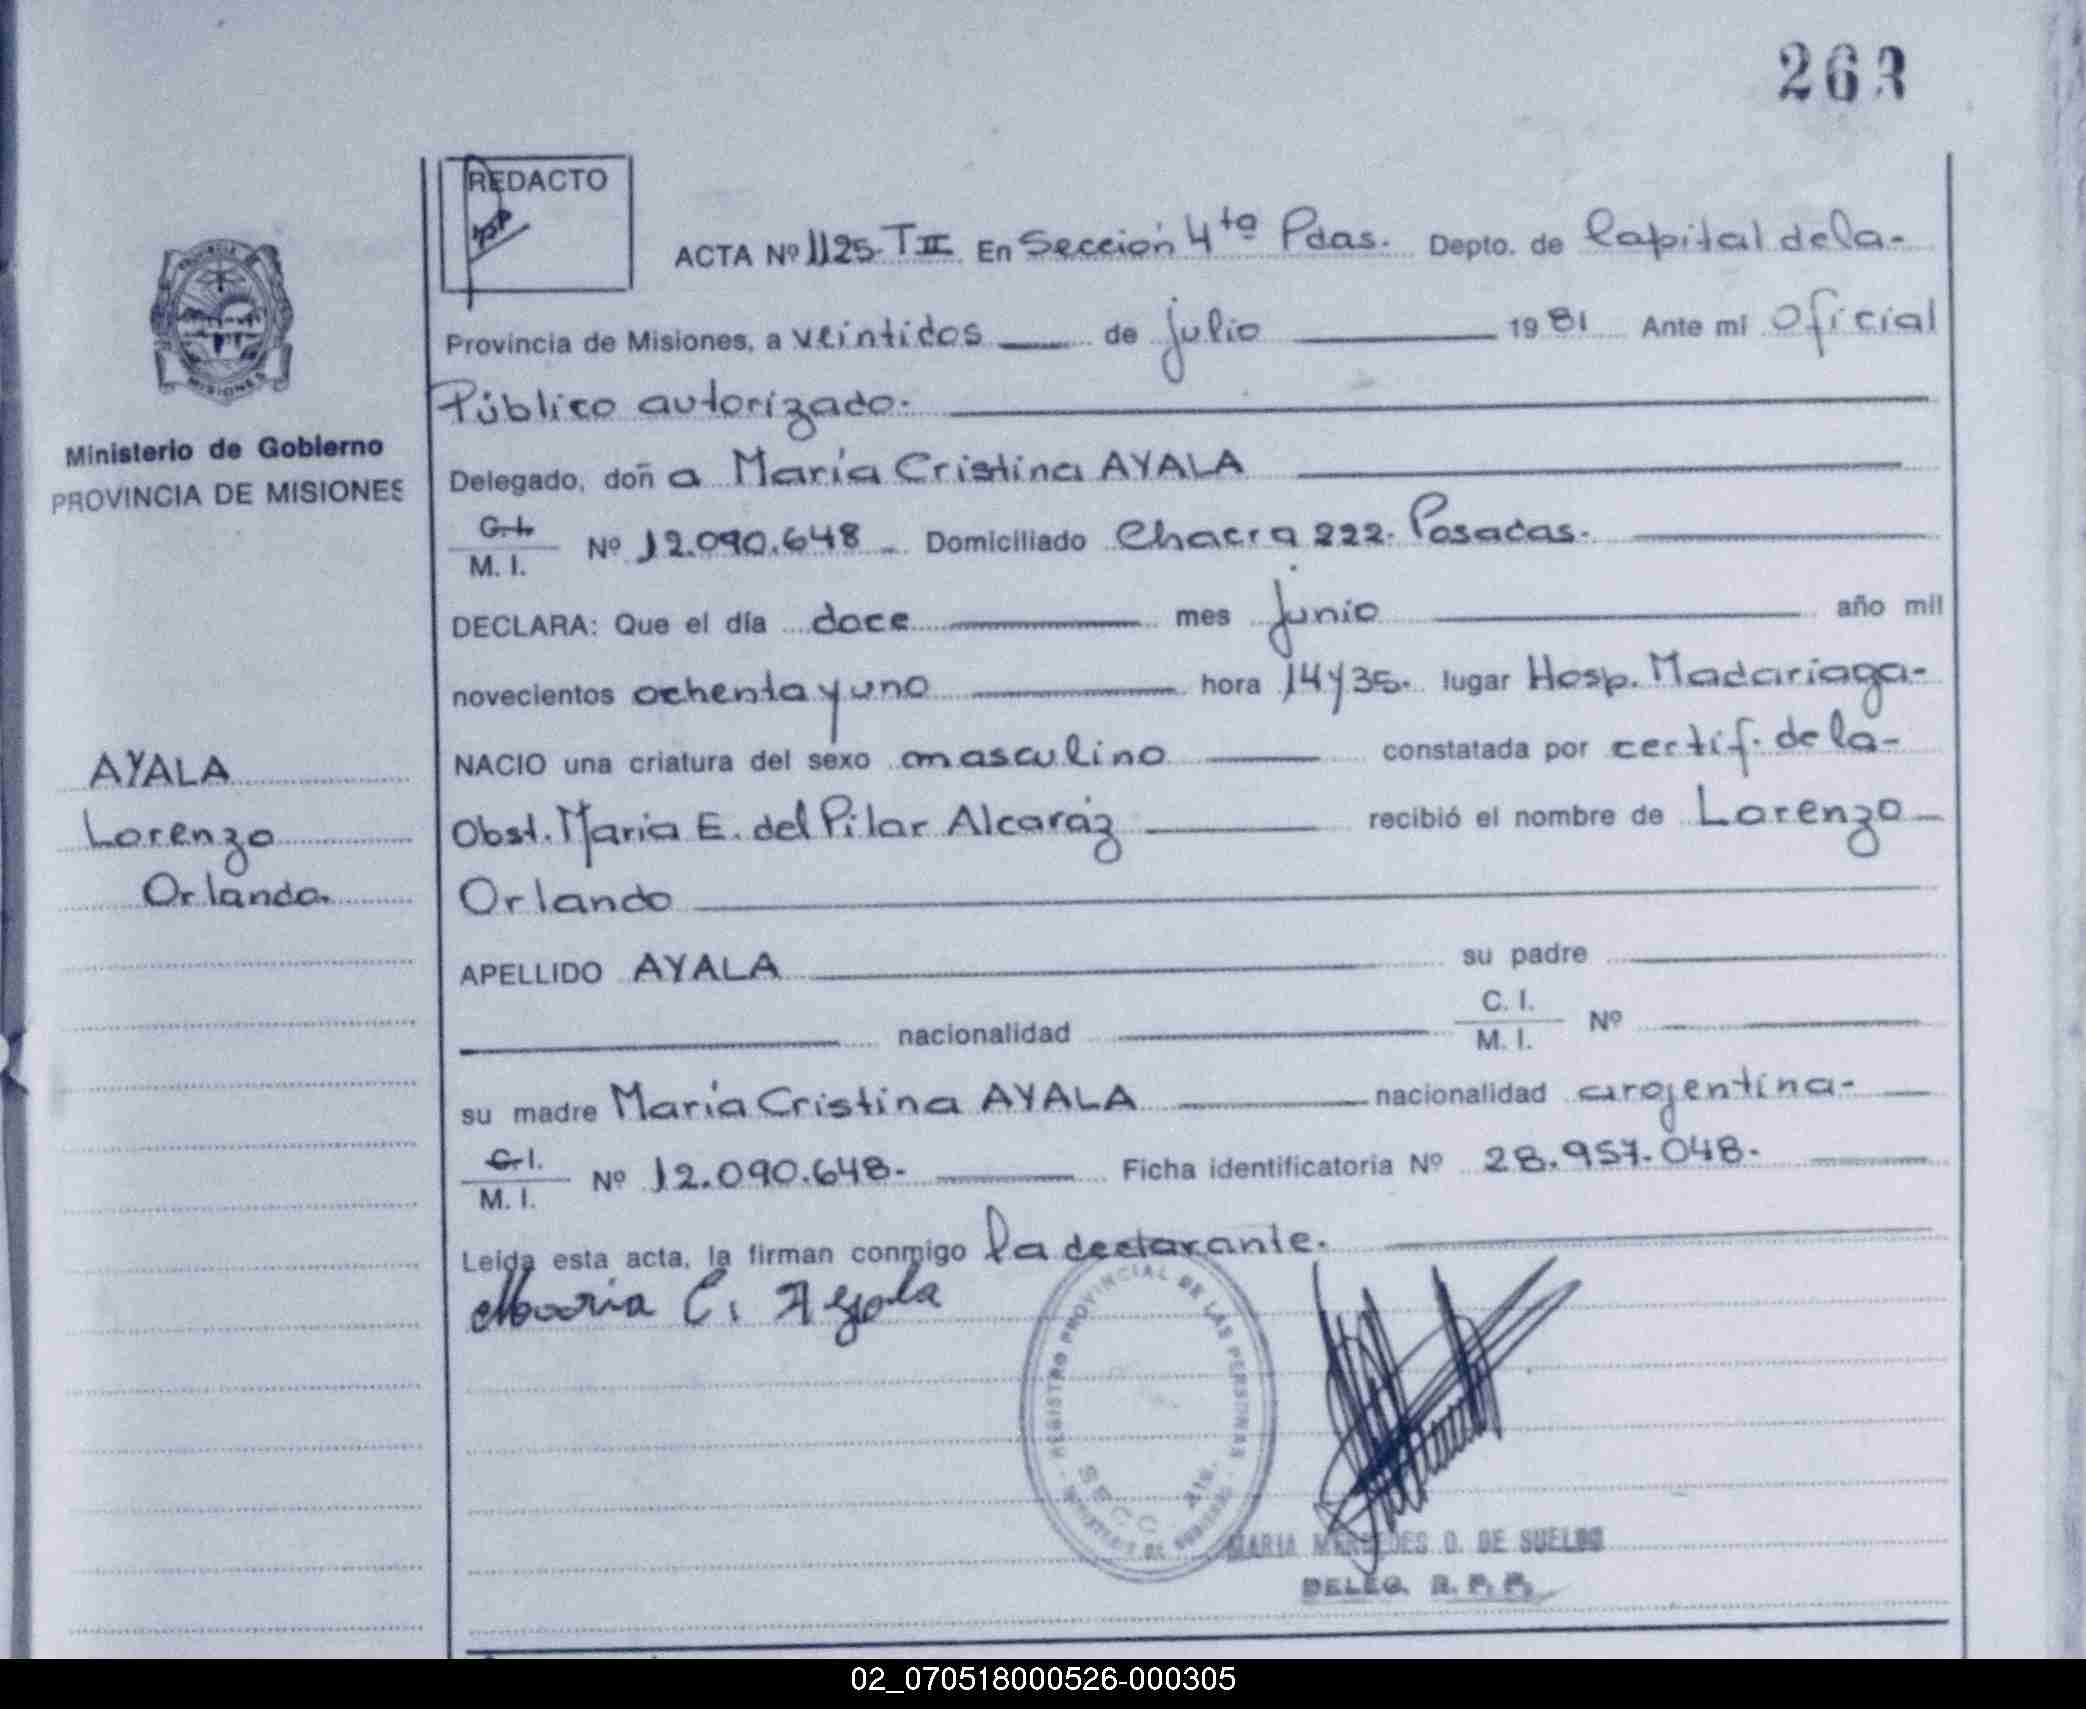 263
REDACTO
ACTA Nº 1125- T II En Sección 4ta Pdas. Depto. de Capital de la-
Provincia de Misiones, a veintidos de julio 1981 Ante mi Oficial
Público autorizado.
Delegado, doña María Cristina AYALA
C. I.
M. I.
Nº 12.090.648 Domiciliado Chacra 222- Posadas.
DECLARA: Que el día doce mes junio año mil
novecientos ochenta y uno hora 14y35. lugar Hosp. Madariaga-
NACIO una criatura del sexo masculino constatada por certif. de la-
Obst. María E. del Pilar Alcaráz recibió el nombre de Lorenzo
Orlando
APELLIDO AYALA su padre
nacionalidad C. I.
M. I.
Nº
su madre María Cristina AYALA nacionalidad argentina-
C. I.
M. I.
Nº 12.090.648- Ficha identificatoria Nº 28.957.048-
Leida esta acta, la firman conmigo la declarante.
Maria C. Ayala
REGISTRO PROVINCIAL DE LAS PERSONAS
SECC
MARIA MERCEDES O. DE SUELDO
DELEG. R. P. P.
MISIONES
Ministerio de Gobierno
PROVINCIA DE MISIONES
AYALA
Lorenzo
Orlando.
02_070518000526-000305